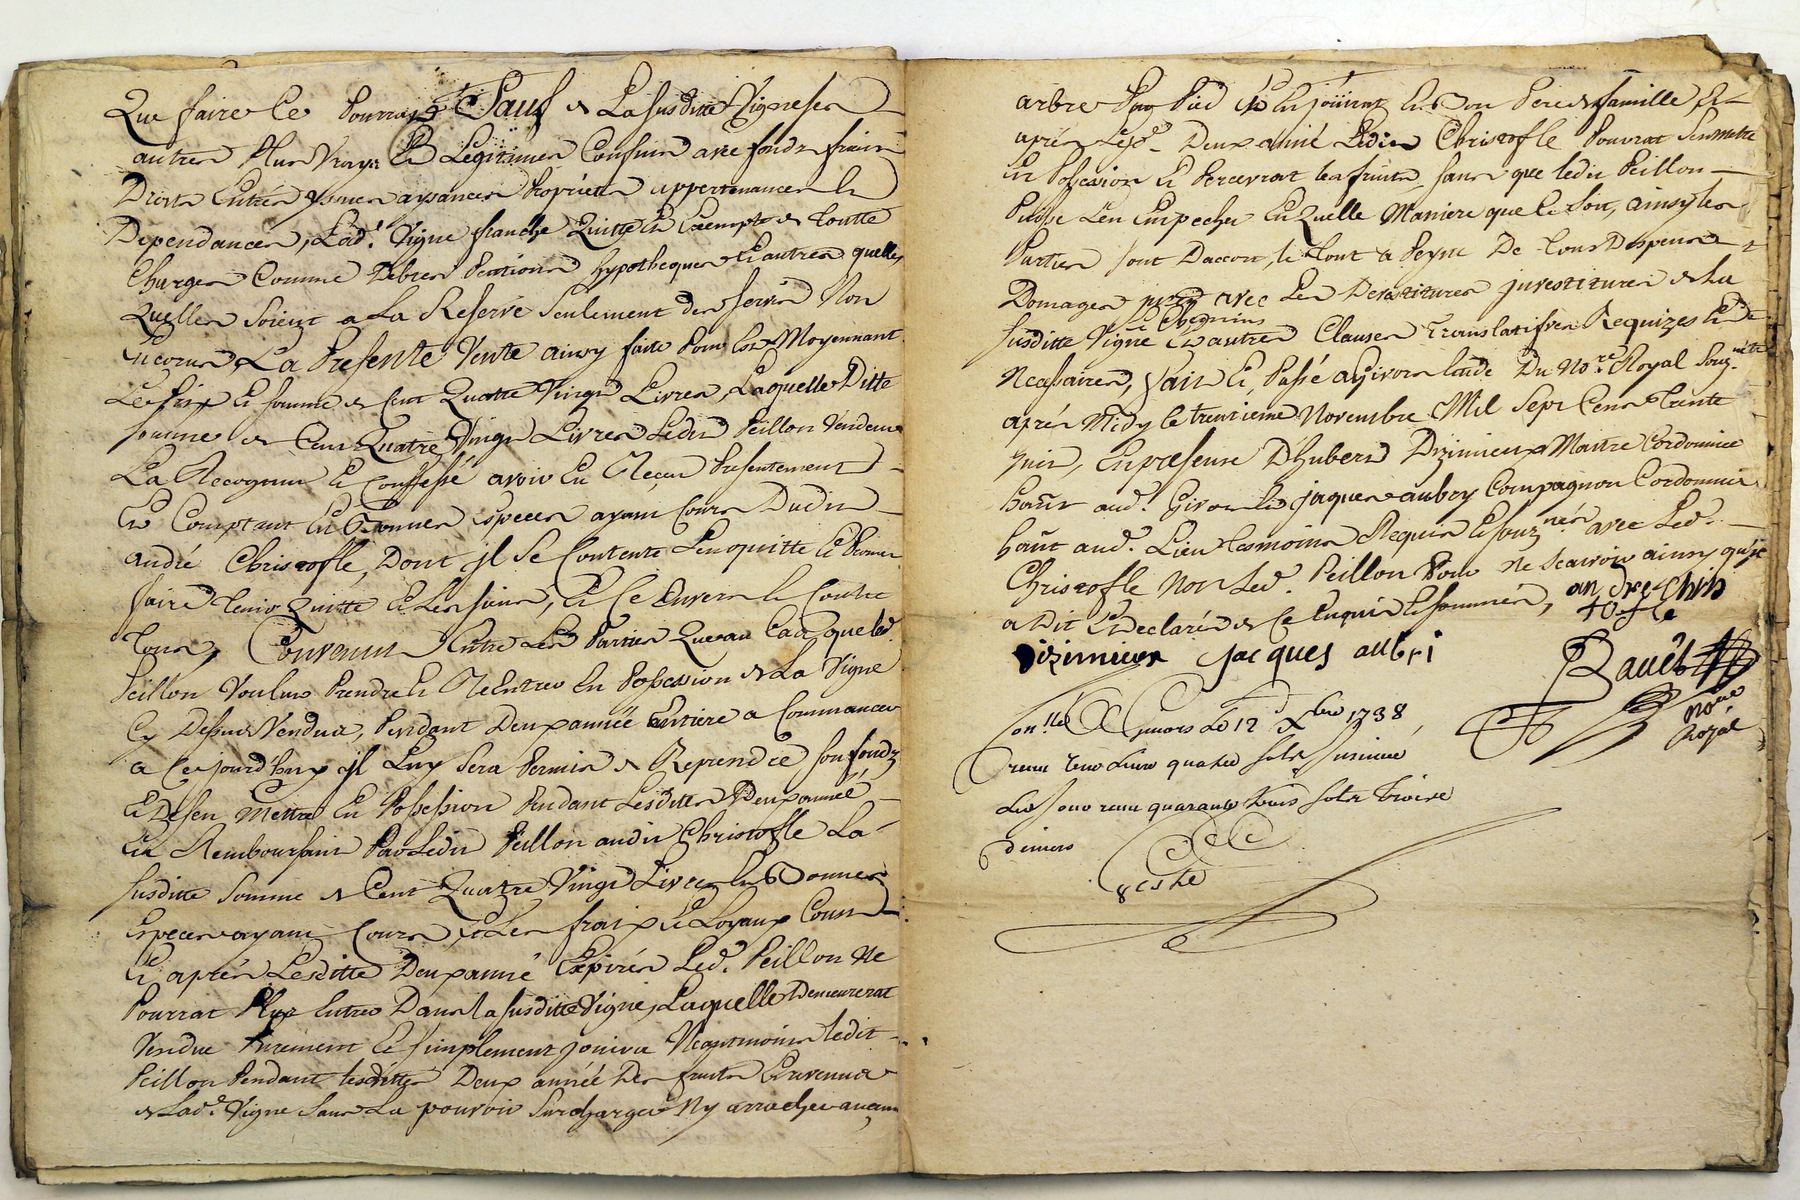 Que faire Ce Pourrat Sauf de La susditte Vigne ses
autres Plus Vrays Et Legitimes Confins avec fonds frais
Droits Entrés ysues aysances Proprietés appertenances Et
Dependances, Lad.e Vigne franche Quitte Et Exempte de toutte
Charges Comme Debtes Pentions hypotheques Et autres quelles
Quelles Soient a La Reserve Seulement des servis Non
Encorus, La Presente Vente ainsy faite Pour Et Moyennant
Le prix Et somme de Cent Quatre Vingt Livres, Laquelle Ditte
somme de Cent Quatre Vingt Livres Ledit Peillon Vendeur
La Recognu Et Confessé avoir Eu Reçeu Presentement
Et Comptant En Bonnes especes ayant Cours Dudit
andré Christofle, Dont jl Se Contente L'en quitte Et Promet
faire tenir Quitte Et Les siens, Et Ce Envers Et Contre
tous, Convenu Entre Les Parties Qu'au Cas que led.
Peillon Voulus Prendre Et Rentrer En Possession de La Vigne
Cy Dessus Vendue, Pendant Deux année Entiere a Commancer
a Cejourd'huy jl Luy Sera Permis de Reprendre son fondz
Et De s'en Mettre En Possession Pendant Lesdittes Deux année
En Remboursant Par Ledit Peillon audit Christofle La
susditte Somme de Cent Quatre Vingt Livres En Bonnes
Especes ayant Cours, et Les fraix Et Loyaux Couts
Et aprés Lesditte Deux anné Expirés Led. Peillon Ne
Pourrat Plus Entrer Dans la susditte Vigne, Laquelle Demeurerat
Vendue Purement Et simplement jouira Neantmoins ledit
Peillon Pendant lesdittes Deux année Des fruits Et revenus
de Lad.e Vigne Sans La pouvoir Surcharger Ny arracher aucun
arbre Par Pied Et En jouirat En Bon Pere de famille Et
aprés Lesd. Deux anné Ledit Christofle Pourrat S'en mettre
En Possession Et Percevrat les fruits sans que ledit Peillon
Puisse L'en Empecher En Quelle Maniere que Ce Soit, ainsy les
Parties sont D'accort, le tout a Peyne De tous Despens
Domages jnterets avec Les Devestitures jnvestitures de La
susditte Vigne Et Chemins
Et autres Clauses Translatifves Requizes Et
Necessaires, fait Et Passé a Givors Etude Du No.re Royal Souz.né
aprés Midy le trentieme Novembre Mil Sept Cens Trente
huit, En presence D'hubert Dizimieux Maitre Cordonnier
hab.nt aud. Givors Et jaques aubry Compagnon Cordonnier
hab.nt aud. Lieu tesmoins Requis Et souz.nés avec Led.
Christofle Non Led. Peillon Pour ne Scavoir ainsy qu'jl
a Dit Et Declaré de Ce Enquis Et sommés, an dre chris
tofle
Dizimieux Jacques aubri
Bauet
No.re
Royal
Con.llé A Givors Le 12 Xbre 1738
receu une Livre quatre sols
Les sous receu quarante trois sols troise
deniers